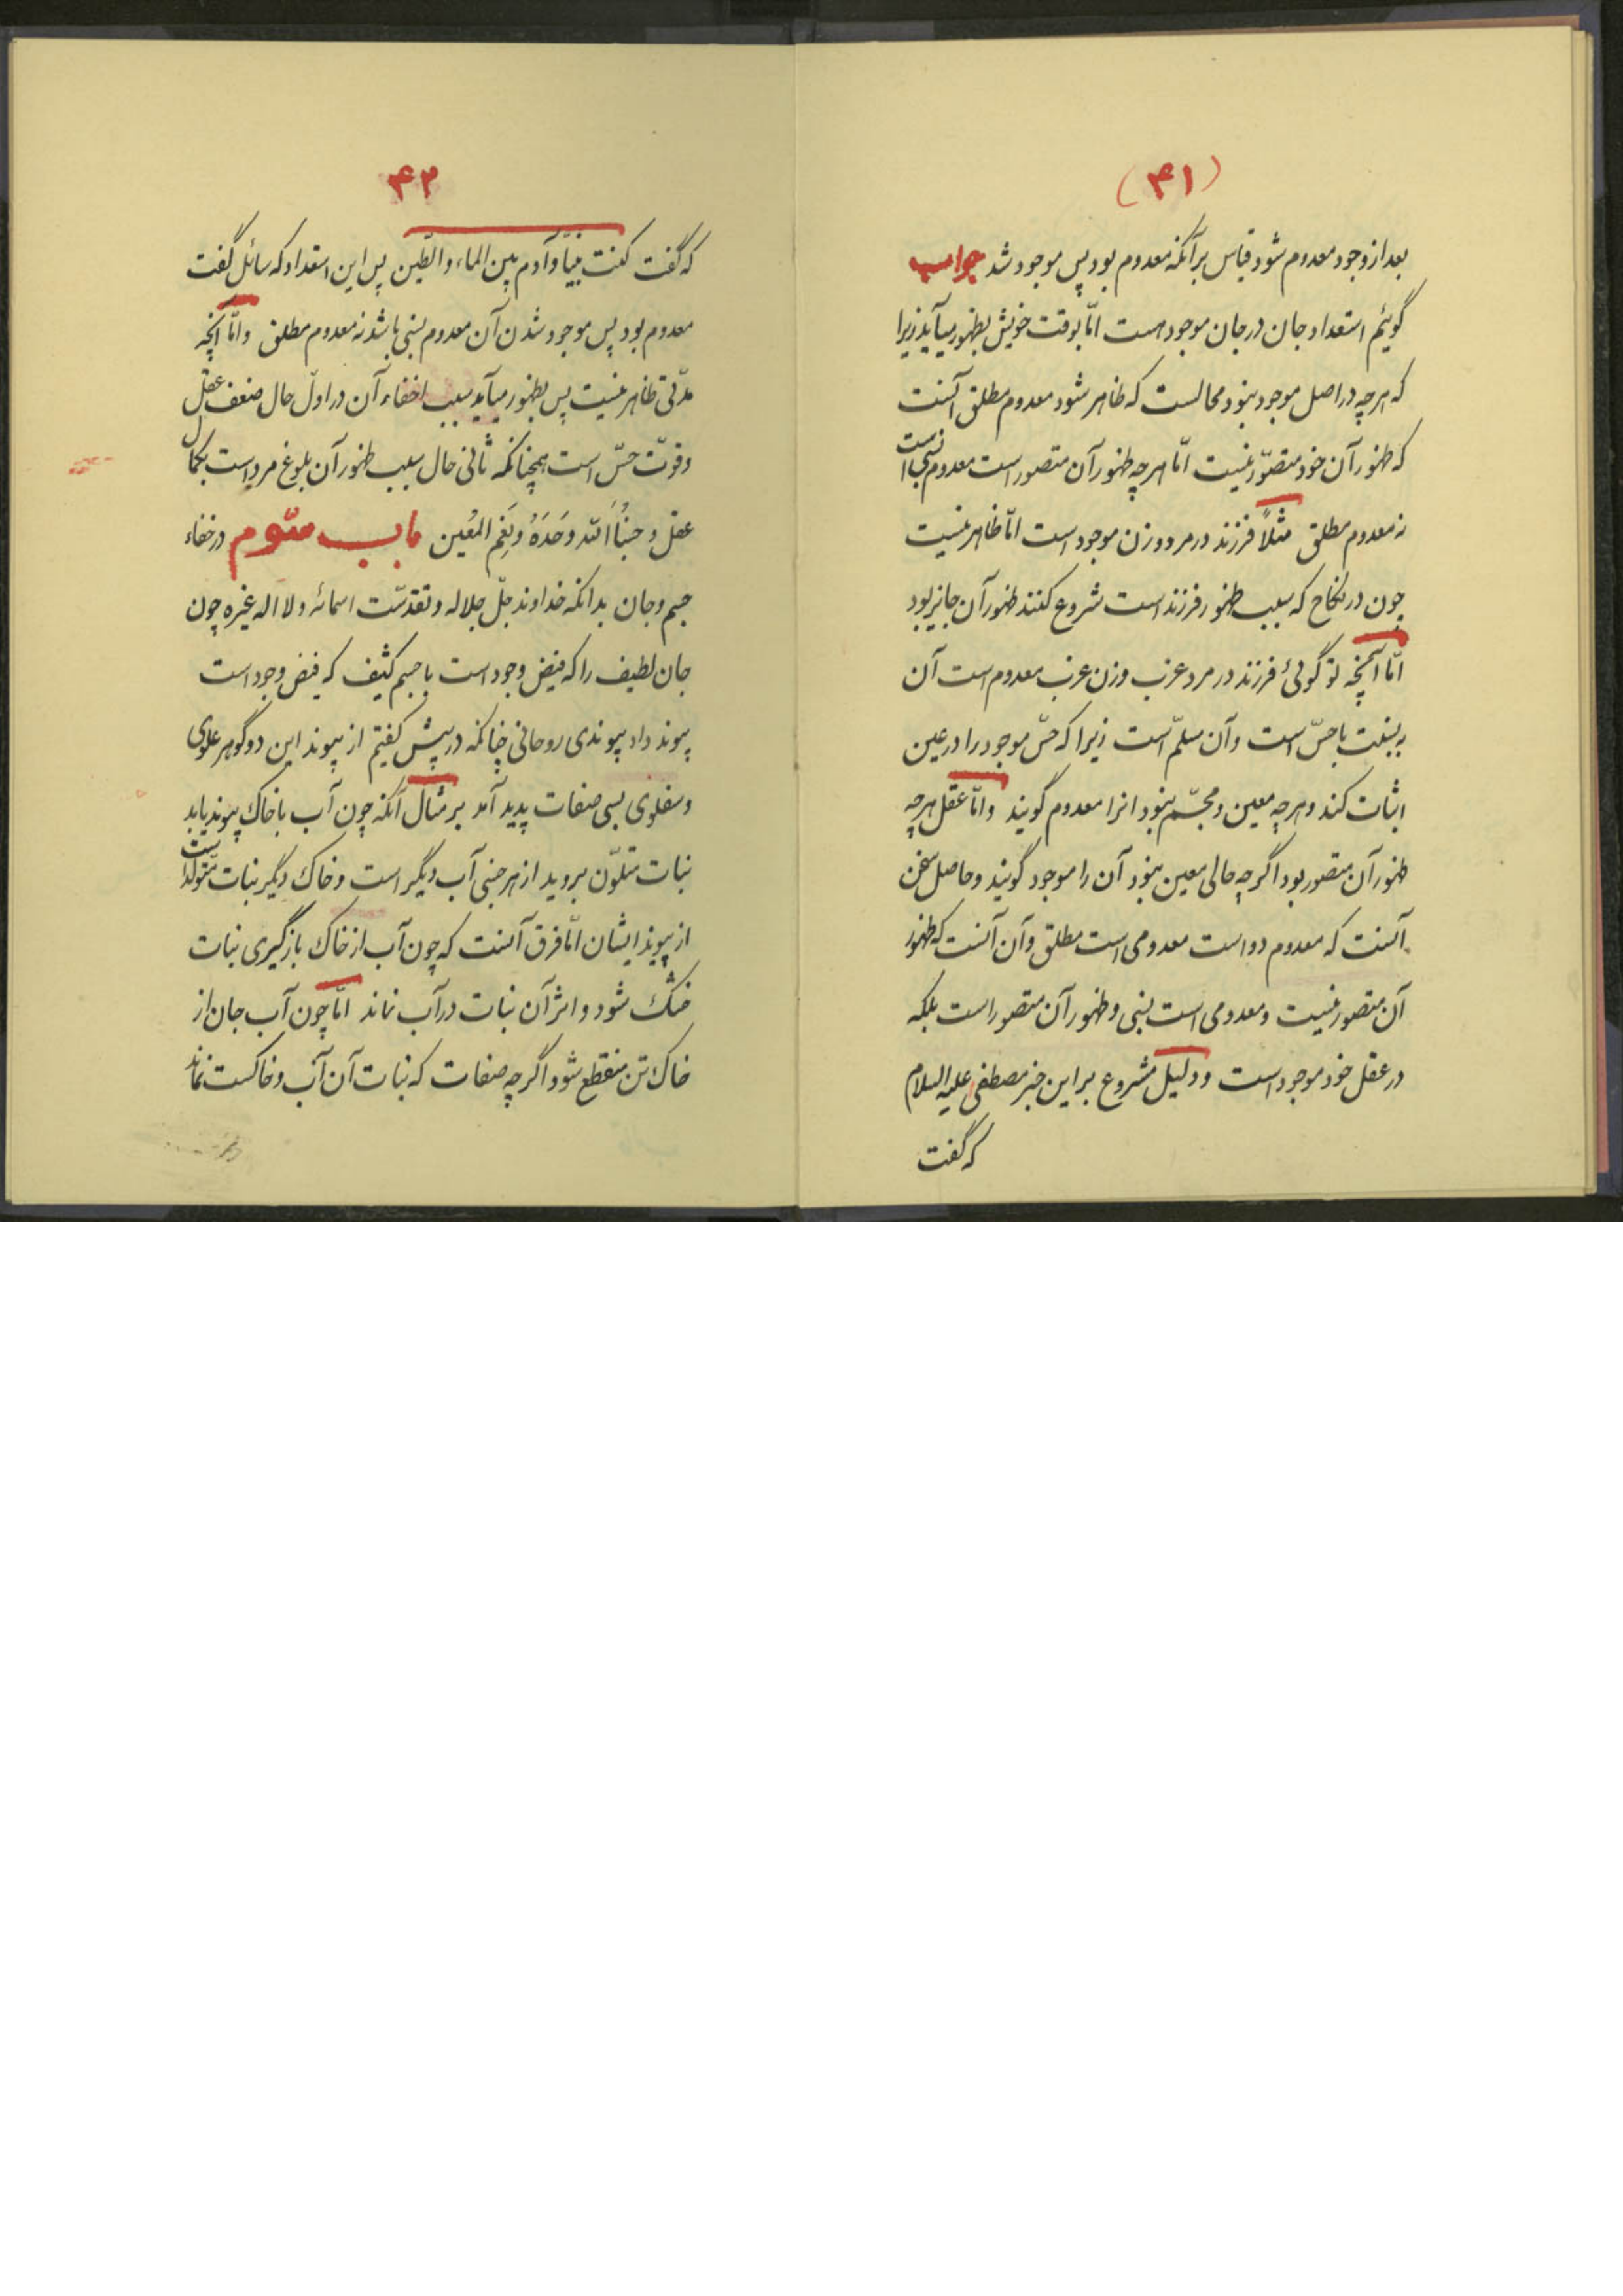 (۴۱)
بعد از وجود معدوم شود قیاس بر آنکه معدوم بود پس موجود شد جواب
گوئیم استعداد جان در جان موجود هست امّا بوقت خویش بظهور میآید زیرا
که هر چه در اصل موجود نبود محالست که ظاهر شود معدوم مطلق آنست
که ظهور آن خود متصوّر نیست امّا هر چه ظهور آن متصور است معدوم نسبی است
نه معدوم مطلق مثلاً فرزند در مرد و زن موجود است امّا ظاهر نیست
چون در نکاح که سبب ظهور فرزند است شروع کنند ظهور آن جایز بود
امّا آنچه تو گوئی فرزند در مرد عزب و زن عزب معدوم است آن
به نسبت با حسّ است و آن مسلّم است زیرا که حسّ موجود را در عین
اثبات کند و هر چه معین و مجسّم نبود انرا معدوم گویند و امّا عقل هر چه
ظهور آن متصور بود اگر چه حالی معین نبود آن را موجود گویند و حاصل سخن
آنست که معدوم دو است معدومی است مطلق و آن آنست که ظهور
آن متصور نیست و معدومی است نسبی و ظهور آن متصور است بلکه
در عقل خود موجود است و دلیل مشروع بر این خبر مصطفی علیه السلام
که گفت
۴۲
که گفت کنت نبیّاً و آدم بین الماء و الطّین پس این استعداد که سائل گفت
معدوم بود پس موجود شدن آن معدوم نسبی باشد نه معدوم مطلق و امّا آنچه
مدّتی ظاهر نیست پس بظهور میآید سبب اخفاء آن در اوّل حال ضعف عقل
و قوّت حسّ است همچنانکه ثانی حال سبب ظهور آن بلوغ مرد است بکمال
عقل و حسبُنا اللّه وحَدَهُ و نِعَم المُعین باب سّوم در خفاء
جسم و جان بدانکه خداوند جلّ جلاله و تقدسّت اسمائه و لا اله غیره چون
جان لطیف را که فیض وجود است با جسم کثیف که فیض وجود است
پیوند داد پیوندی روحانی چنانکه در پیش گفتیم از پیوند این دو گوهر علوی
و سفلوی بسی صفات پدید آمد بر مثال آنکه چون آب با خاک پیوند یابد
نبات متلوّن بروید از هر جنبی آب دیگر است و خاک دیگر نبات متولّد است
از پیوند ایشان امّا فرق آنست که چون آب از خاک بازگیری نبات
خشک شود و اثر آن نبات در آب نماند امّا چون آب جان از
خاک تن منقطع شود اگر چه صفات که نبات آن آب و خاکست نماند